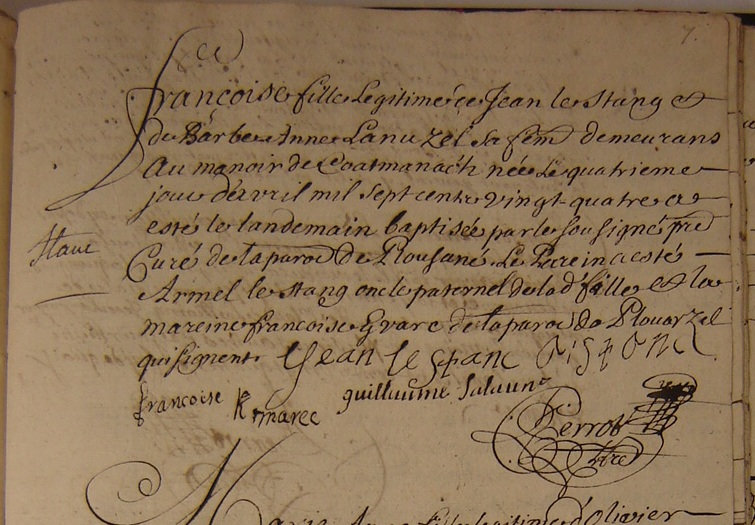 7.
francoise fille legitime de Jean le Stang et
de Barbe Anne Lanuzel sa fem demeurans
au manoir de Coatmanach née le quatrieme
jour d'avril mil sept cent vingt quatre a
esté le landemain baptisée par le sousigné pre
Curé de la paroe de Plousané. Le Parein a esté
Armel le Stang oncle paternel de la de fille et la
mareine francoise Evarc de la paroe de Plouarzel
qui signent. Jean le stanc
francoise Kmarec
guillaume salaun
Perrot
pre
Marie Anne fille legitime d'Olivier